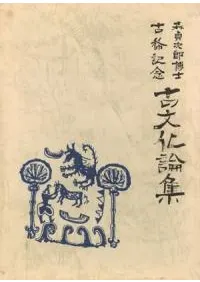 森貞次郎博士
古稀記念
古文化論集